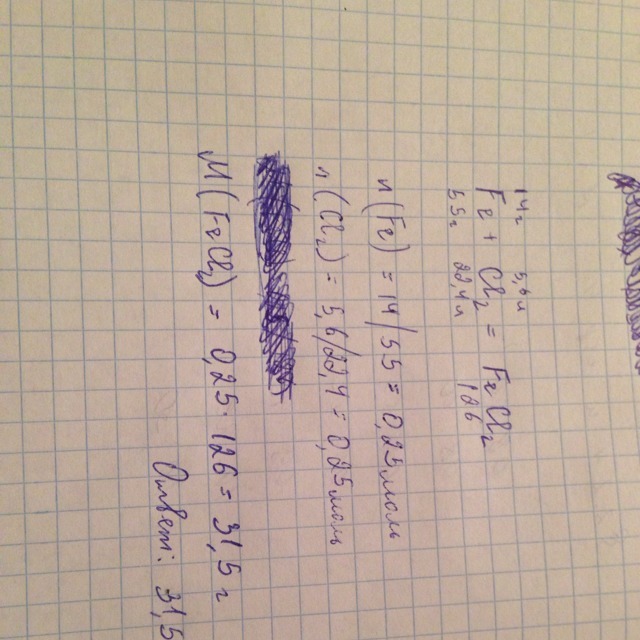 14г 5,6л
Fe + Cl₂ = FeCl₂
55г 22,4л 126
n(Fe) = 14/55 = 0,25моль
n(Cl₂) = 5,6/22,4 = 0,25моль
M(FeCl₂) = 0,25·126 = 31,5г
Ответ: 31,5